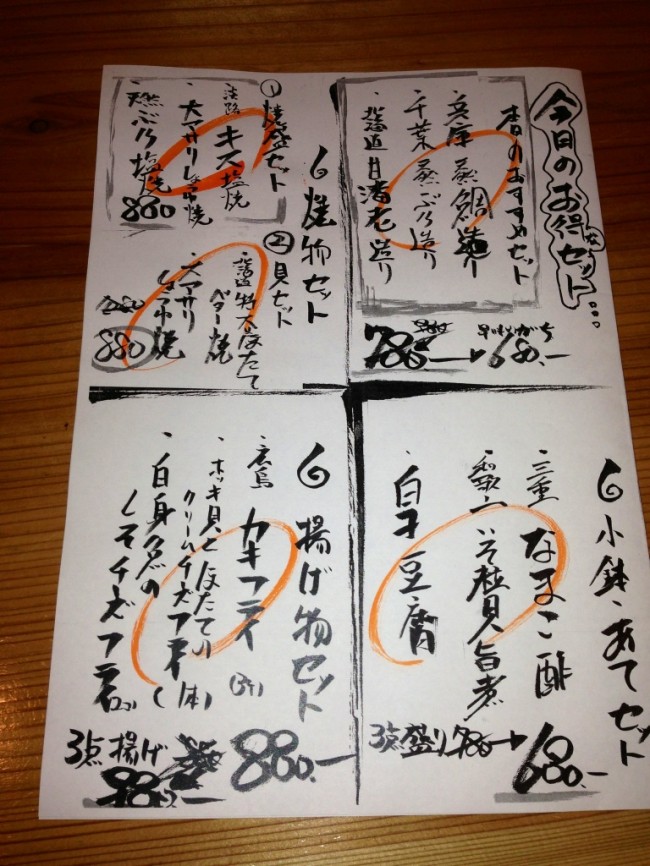 今日のお得なセット...
春のおすすめセット
・兵庫 蒸鯛造り
・千葉 蒸ぶり造り
・北海道甘海老造り
780- → 680.-
早いもんがち
6焼物セット
①焼盛セット
・淡路 キス塩焼
・大アサリしょうゆ焼
・天然ぶり塩焼
880
②貝セット
・北海道特大ほたて
バター焼
・大アサリ
しょうゆ焼
880
6小鉢・あてセット
・三重 なまこ酢
・和歌山 いそ貝旨煮
・白子豆腐
3点盛り 780- → 600.-
6揚げ物セット
・広島 カキフライ
・ホッキ貝とほたての
クリームチーズフライ(1本)
・白身魚の
しそチーズフライ
3点揚げ
800.-